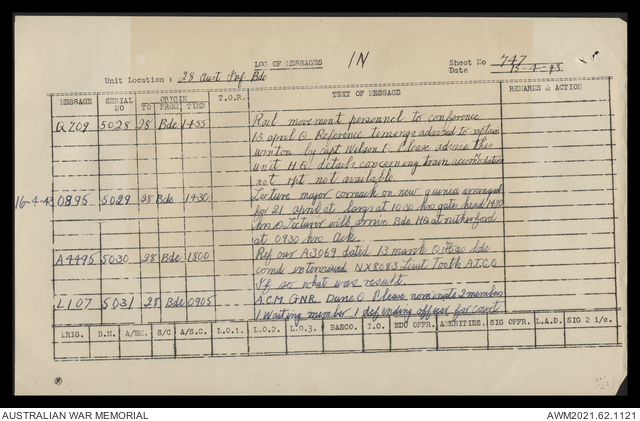 LOG OF MESSAGES IN Sheet No 747
Unit Location : 28 Aust Inf Bde Date 15-4-43
MESSAGE SERIAL No ORIGIN TO FROM TIME T.O.R. TEXT OF MESSAGE REMARKS & ACTION
Q709 5028 28 Bde 1455 Rail movement personnel to conference
13 april O Reference timings advised to captain
winton by capt Wilson O. Please advise this
unit H.Q. details concerning train accomodation
rat rpt not available.
16-4-43 0895 5029 28 Bde 1430 Lecture major cormack on new guinea arranged
for 21 april at largs at 1030 hrs gate head 1430
hrs O Lecturer will arrive Bde HQ at rutherford
at 0930 hrs Ack.
A4495 5030 28 Bde 1800 Ref our A3069 dated 13 march O Has bde
comd interviewed NX8083 Lieut Tooth A.T.C O
If so what was result.
L107 5031 28 Bde 0905 A.C.M. GNR Dune O Please nominate 2 members
1 Waiting member 1 defending officer for court
ORIG. B.M. A/BM. S/C A/S.C. L.O.1. L.O.2. L.O.3. BASCO. I.O. EDU OFFR. AMENITIES. SIG OFFR. L.A.D. SIG 2 i/c.
AUSTRALIAN WAR MEMORIAL AWM2021.62.1121